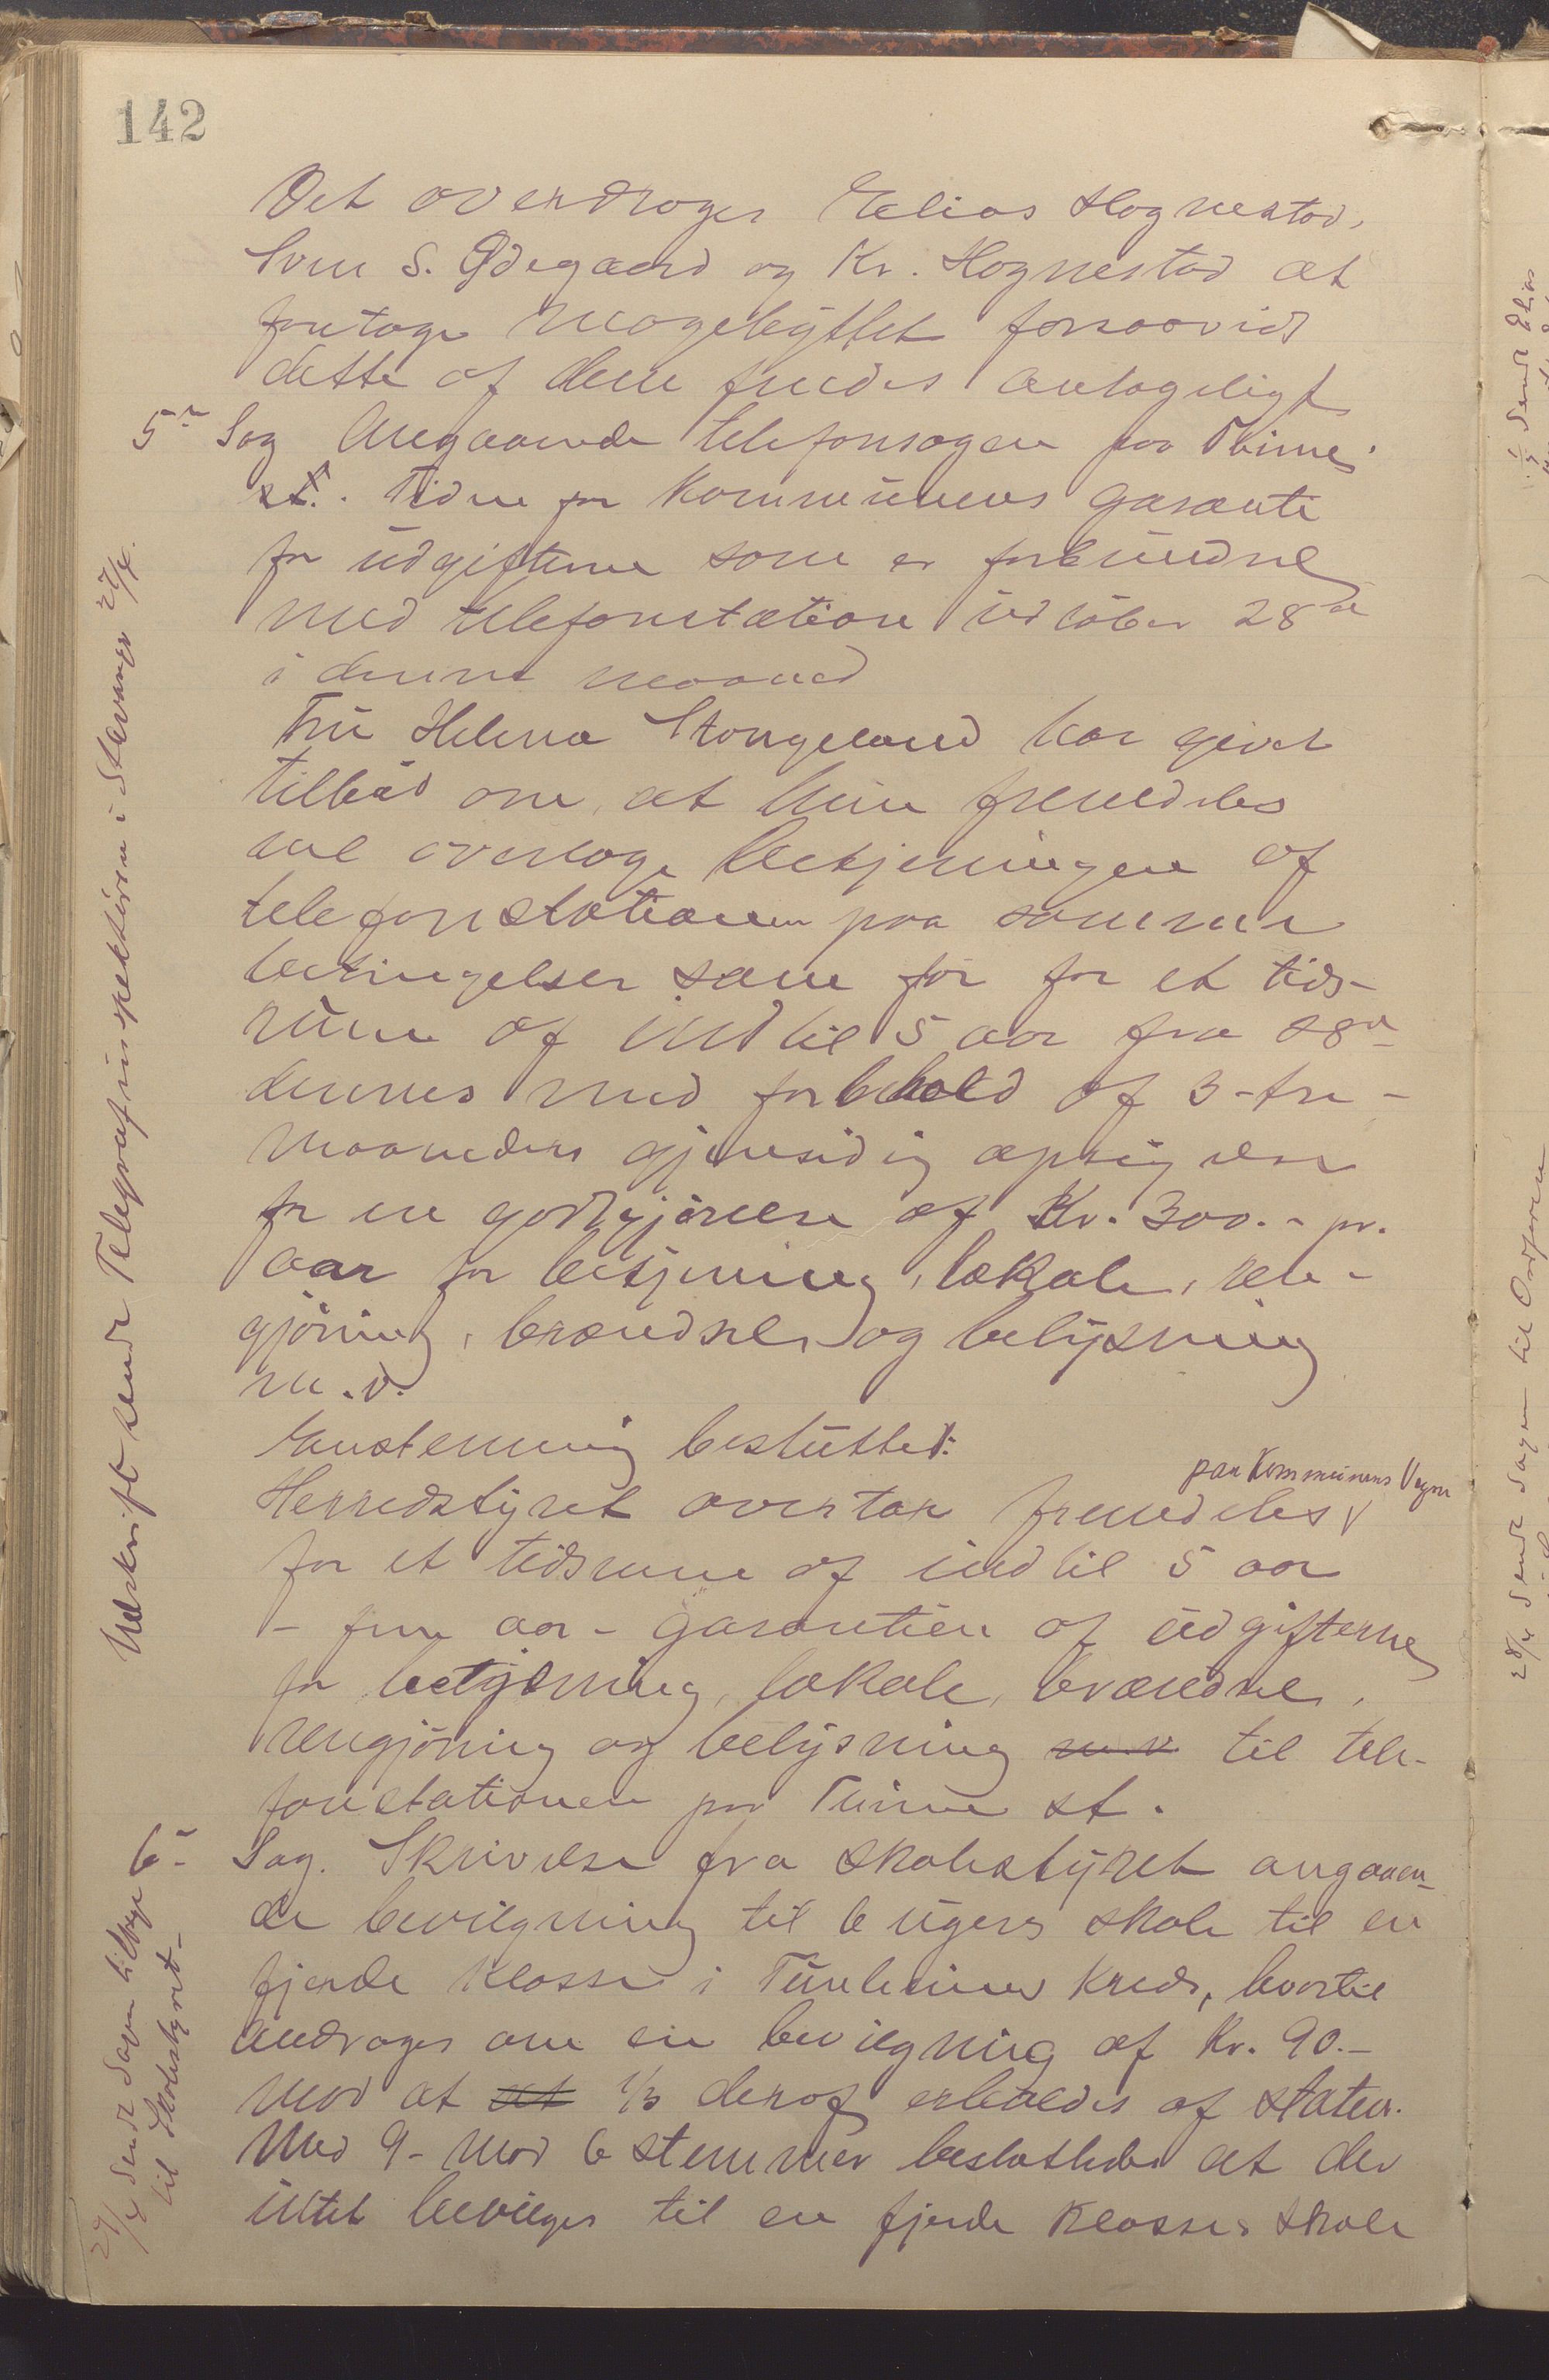 142
Det overdroges Elias Hognestad,
Sven S. Ødegaard og Kr. Hognestad at
foretage magebyttet forsaavidt
dette af dem findes antageligt
5te Sag Angaaende telefonsagen paa Thime
st. Tiden for Kommunens garanti
for udgifterne som er forbundne
med telefonstation udløber 28de
i denne maaned
Fru Helena Stangeland har givet
tilbud om, at hun fremdeles
vil overtage betjeningen af
telefonstationen paa samme
betingelser som før for et tids-
rum af indtil 5 aar fra 28de
dennes med forbehold af 3-tre-
maaneders gjensidig opsigelse
for en godtgjørelse af Kr. 300.- pr.
aar for betjening, lokale, ren-
gjøring, brændsel og belysning
m.v.
Enstemmig besluttet:
Herredstyret overtar fremdeles paa Kommunens Vegne
for et tidsrum af indtil 5 aar
- fem aar - garantien af udgifterne
for betjening, lokale, brændsel,
rengjøring og belysning m.v. til tele-
fonstationen paa Thime st.
6te Sag. Skrivelse fra Skolestyret angaaen-
de bevilgning til 6 ugers skole til en
fjerde klasse i Tunheims Kreds, hvortil
andrages om en bevilgning af Kr. 90.-
mod at at 1/3 deraf erholdes af staten.
Med 9- mod 6 stemmer besluttedes at der
intet bevilges til en fjerde klasses skole
Udskrift sendt Telegrafinspektøren i Stavanger 27/4.
27/4 Sendt Sagen tilbage
til Skolestyret-
28/4 Sendt Sagen til Ordføreren
Sendt Elias